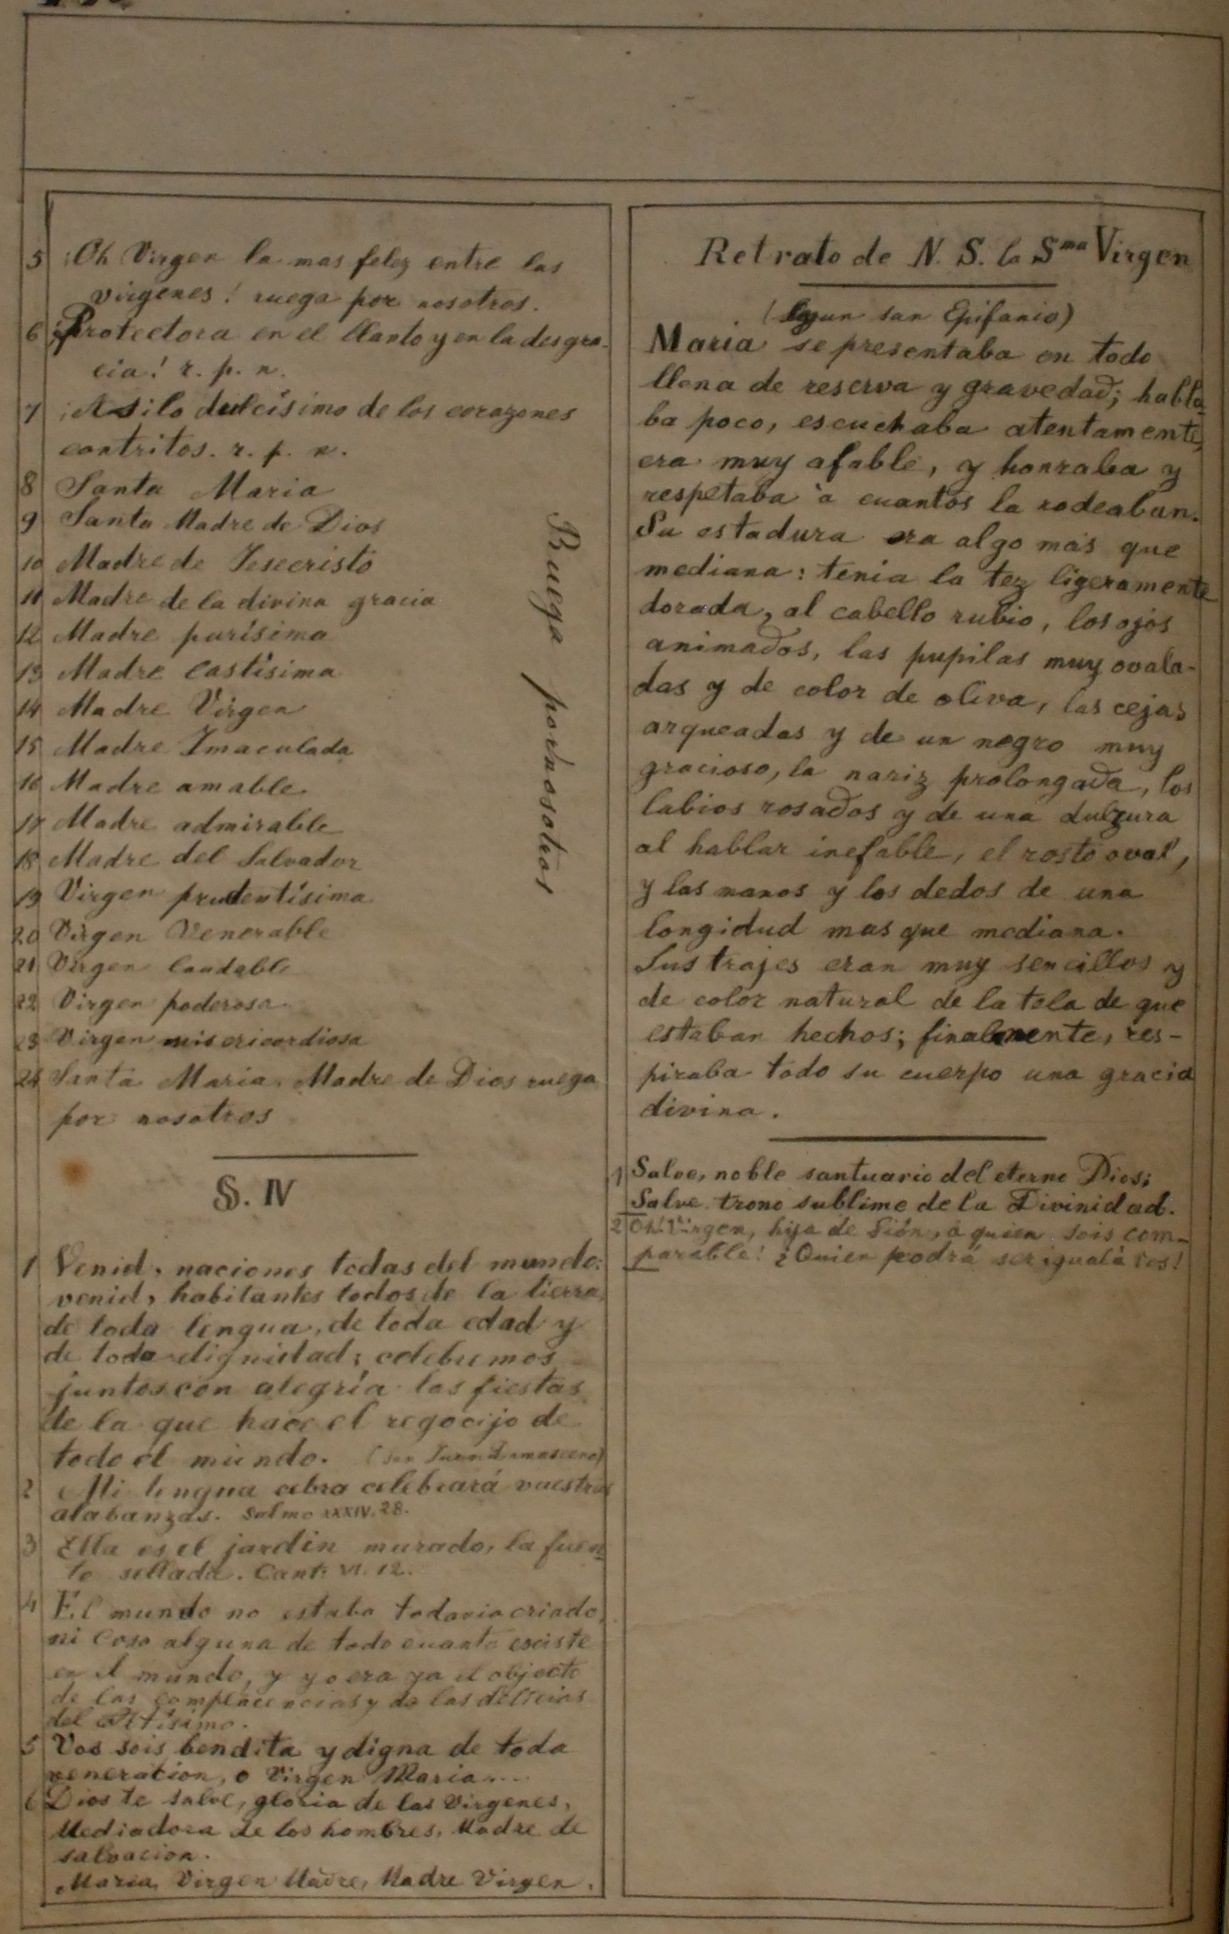 5 ¡Oh Virgen la mas felez entre las
virgenes! ruega por nosotros.
6 ¡Protectora en el llanto y en la desgra-
cia! r. p. n.
7 ¡Asilo dulcísimo de los corazones
contritos. r. p. n.
8 Santa Maria
9 Santa Madre de Dios
10 Madre de Jesecristo
11 Madre de la divina gracia
12 Madre purísima
13 Madre castísima
14 Madre Virgen
15 Madre Imaculada
16 Madre amable
17 Madre admirable
18 Madre del Salvador
19 Virgen prudentísima
20 Virgen Venerable
21 Virgen laudable
22 Virgen poderosa
23 Virgen misericordiosa
24 Santa Maria, Madre de Dios ruega
por nosotros
Ruega por nosotros
§. IV
1 Venid, naciones todas del mundo:
venid, habitantes todos de la tierra,
de toda lengua, de toda edad y
de toda dignidad; celebremos
juntos con alegría las fiestas
de la que hace el regocijo de
todo el mundo. (San Juan Damasceno)
2 Mi lengua celebrará vuestras
alabanzas. Salmo XXXIV. 28.
3 Ella es el jardin murado, la fuen-
te sellada. Cant. VI. 12.
4 El mundo no estaba todavia criado,
ni cosa alguna de todo cuanto esciste
en el mundo, y yo era ya el objecto
de las complacencias y de las delicias
del Altísimo.
5 Vos sois bendita y digna de toda
veneracion, o Virgen Maria....
6 Dios te salve, gloria de las Virgenes,
Mediadora de los hombres, Madre de
salvacion.
Maria, Virgen Madre, Madre Virgen.
Retrato de N. S. la Sma Virgen
(segun san Epifanio)
Maria se presentaba en todo
llena de reserva y gravedad; habla-
ba poco, escuchaba atentamente,
era muy afable, y honraba y
respetaba à cuantos la rodeaban.
Su estadura era algo más que
mediana: tenia la tez ligeramente
dorada, al cabello rubio, los ojos
animados, las pupilas muy ovala-
das y de color de oliva, las cejas
arqueadas y de un negro muy
gracioso, la nariz prolongada, los
labios rosados y de una dulzura
al hablar inefable, el rosto oval,
y las manos y los dedos de una
longidud mas que mediana.
Sus trajes eran muy sencillos y
de color natural de la tela de que
estaban hechos; finalmente, res-
piraba todo su cuerpo una gracia
divina.
1 Salve, noble santuario del eterno Dios;
Salve trono sublime de la Divinidad.
2 Oh! Virgen, hija de Sión, á quien sois com-
parable! ¿Quien podrá ser igual á vos!